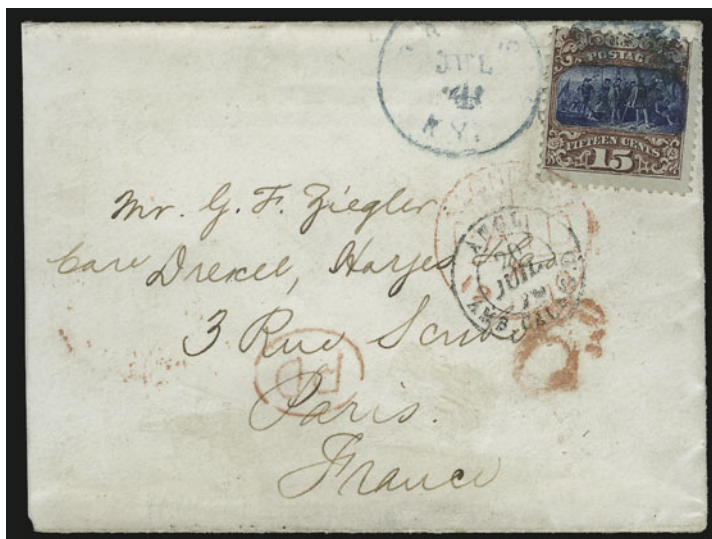 JUL
KY.
POSTAGE
FIFTEEN CENTS
15
Mr. G. F. Ziegler
Care Drexel, Harjes & Co
3 Rue Scribe
Paris.
France
ANGL.
20
JUIL
AMB. CALAIS D
PD